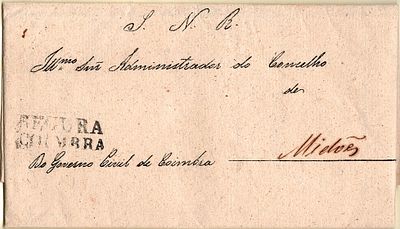 S. N. R.
Illmo Snr Administrador do Concelho
de
SEGURA
COIMBRA
Midões
Do Governo Civil de Coimbra